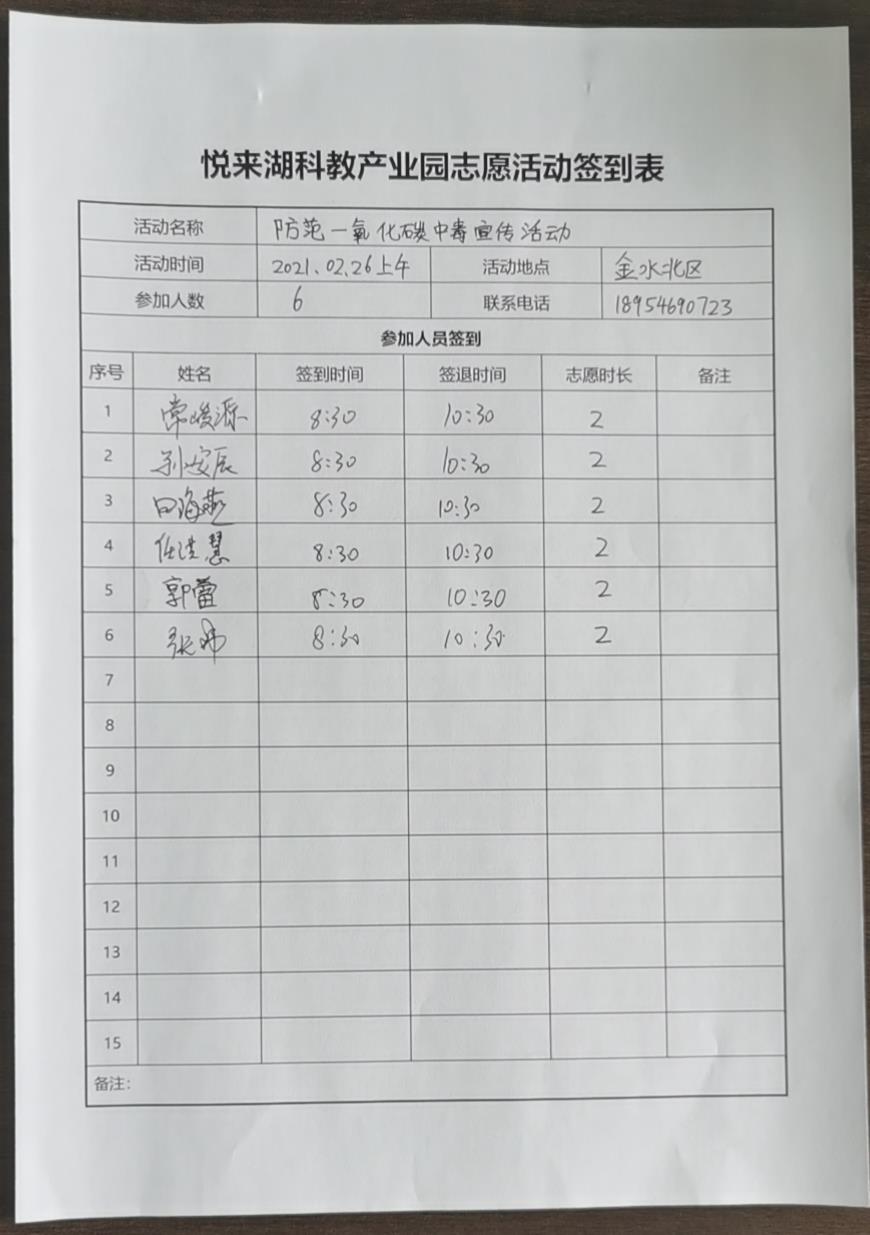 悦来湖科教产业园志愿活动签到表
活动名称 防范一氧化碳中毒宣传活动
活动时间 2021.02.26上午 活动地点 金水北区
参加人数 6 联系电话 18954690723
参加人员签到
序号 姓名 签到时间 签退时间 志愿时长 备注
1 常峻源 8:30 10:30 2
2 孙安辰 8:30 10:30 2
3 田海燕 8:30 10:30 2
4 任洪慧 8:30 10:30 2
5 郭蕾 8:30 10:30 2
6 张 8:30 10:30 2
7
8
9
10
11
12
13
14
15
备注: